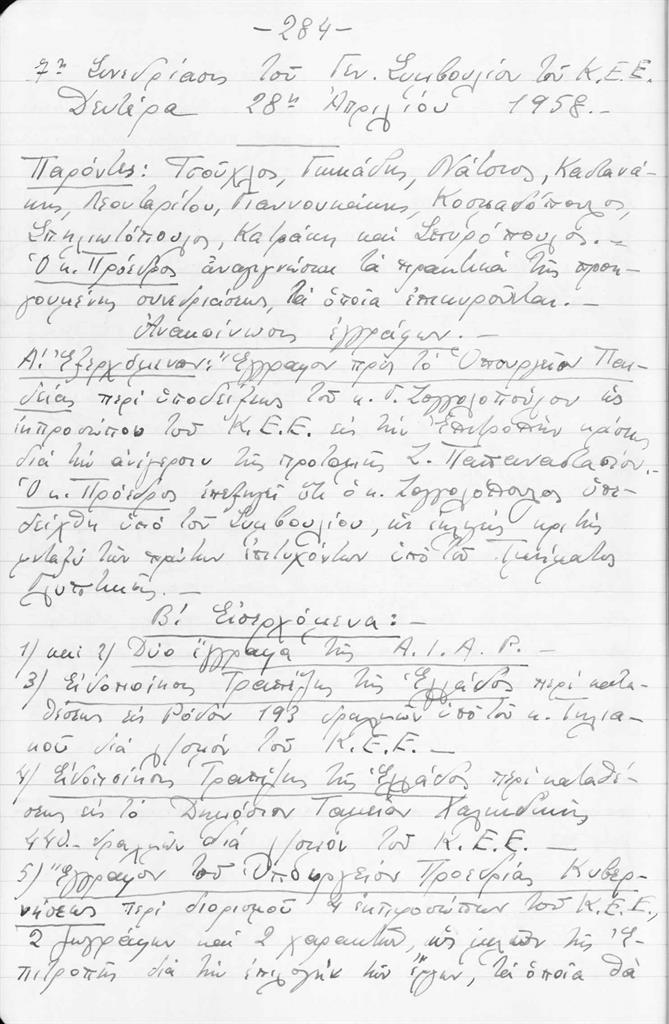 -284-
7η Συνεδρίασις τοῦ Γεν. Συμβουλίου τοῦ Κ.Ε.Ε.
Δευτέρα 28η Ἀπριλίου 1958.-
Παρόντες: Τσοῦχλος, Γιωλάσης, Νάτσιος, Καστανά-
κης, Λεονταρίτου, Γιαννουκάκης, Κοσμαδόπουλος,
Σπηλιωτόπουλος, Κατράκη καὶ Σπυρόπουλος.-
Ὁ κ. Πρόεδρος ἀναγιγνώσκει τὰ πρακτικὰ τῆς προη-
γουμένης συνεδριάσεως, τὰ ὁποῖα ἐπικυροῦνται.-
Ἀνακοίνωσις ἐγγράφων.-
Α! Ἐξερχόμενον: Ἔγγραφον πρὸς τὸ Ὑπουργεῖον Παι-
δείας περὶ ὑποδείξεως τοῦ κ. Γ. Ζογγολοπούλου ὡς
ἐκπροσώπου τοῦ Κ.Ε.Ε. εἰς τὴν Ἐπιτροπὴν κρίσεως
διὰ τὴν ἀνέγερσιν τῆς προτομῆς Ζ. Παπαναστασίου.-
Ὁ κ. Πρόεδρος ἐπεξηγεῖ ὅτι ὁ κ. Ζογγολόπουλος ὑπε-
δείχθη ὑπὸ τοῦ Συμβουλίου, ὡς κριτὴς
μεταξὺ τῶν πρώτων ἐπιτυχόντων ὑπὸ τοῦ Τμήματος
Γλυπτικῆς.-
Β! Εἰσερχόμενα:-
1) καὶ 2) Δύο ἔγγραφα τῆς A.I.A.P.-
3) Εἰδοποίησις Τραπέζης τῆς Ἑλλάδος περὶ κατα-
θέσεως εἰς Ρόδον 193 δραχμῶν ὑπὸ τοῦ κ.
διὰ λ/σμόν τοῦ Κ.Ε.Ε.-
4) Εἰδοποίησις Τραπέζης τῆς Ἑλλάδος περὶ καταθέ-
σεως εἰς τὸ Δημόσιον Ταμεῖον Χαλκιδικῆς
440.- δραχμῶν διὰ λ/σμόν τοῦ Κ.Ε.Ε.-
5) Ἔγγραφον τοῦ Ὑπουργείου Προεδρίας Κυβερ-
νήσεως περὶ διορισμοῦ 4 ἐκπροσώπων τοῦ Κ.Ε.Ε.,
2 ζωγράφων καὶ 2 χαρακτῶν, ὡς μελῶν τῆς Ἐ-
πιτροπῆς διὰ τὴν ἐπιλογὴν τῶν ἔργων, τὰ ὁποῖα θὰ